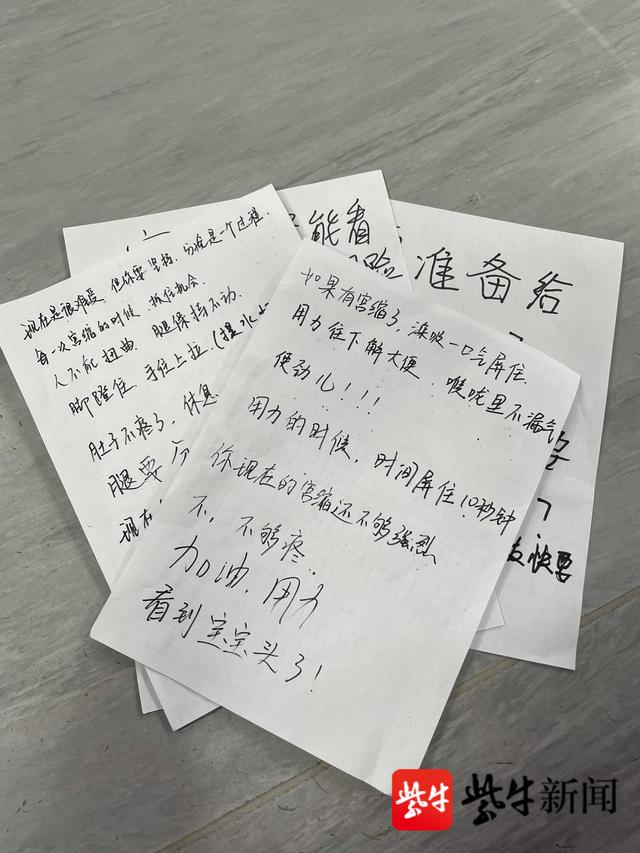 能看
准备给
现在是很难受，但你要坚持，分娩是一个过程.
每一次宫缩的时候，抓住机会.
人不能扭曲，腿保持不动.
脚蹬住，手往上拉.(提水
肚子不疼了，休息
腿要
现在
如果有宫缩了，深吸一口气屏住
用力往下解大便，喉咙里不漏气
使劲儿!!!
用力的时候，时间屏住10秒钟
你现在的宫缩还不够强烈
不，不够疼.
加油，用力
看到宝宝头了!
快要
紫牛 紫牛新闻